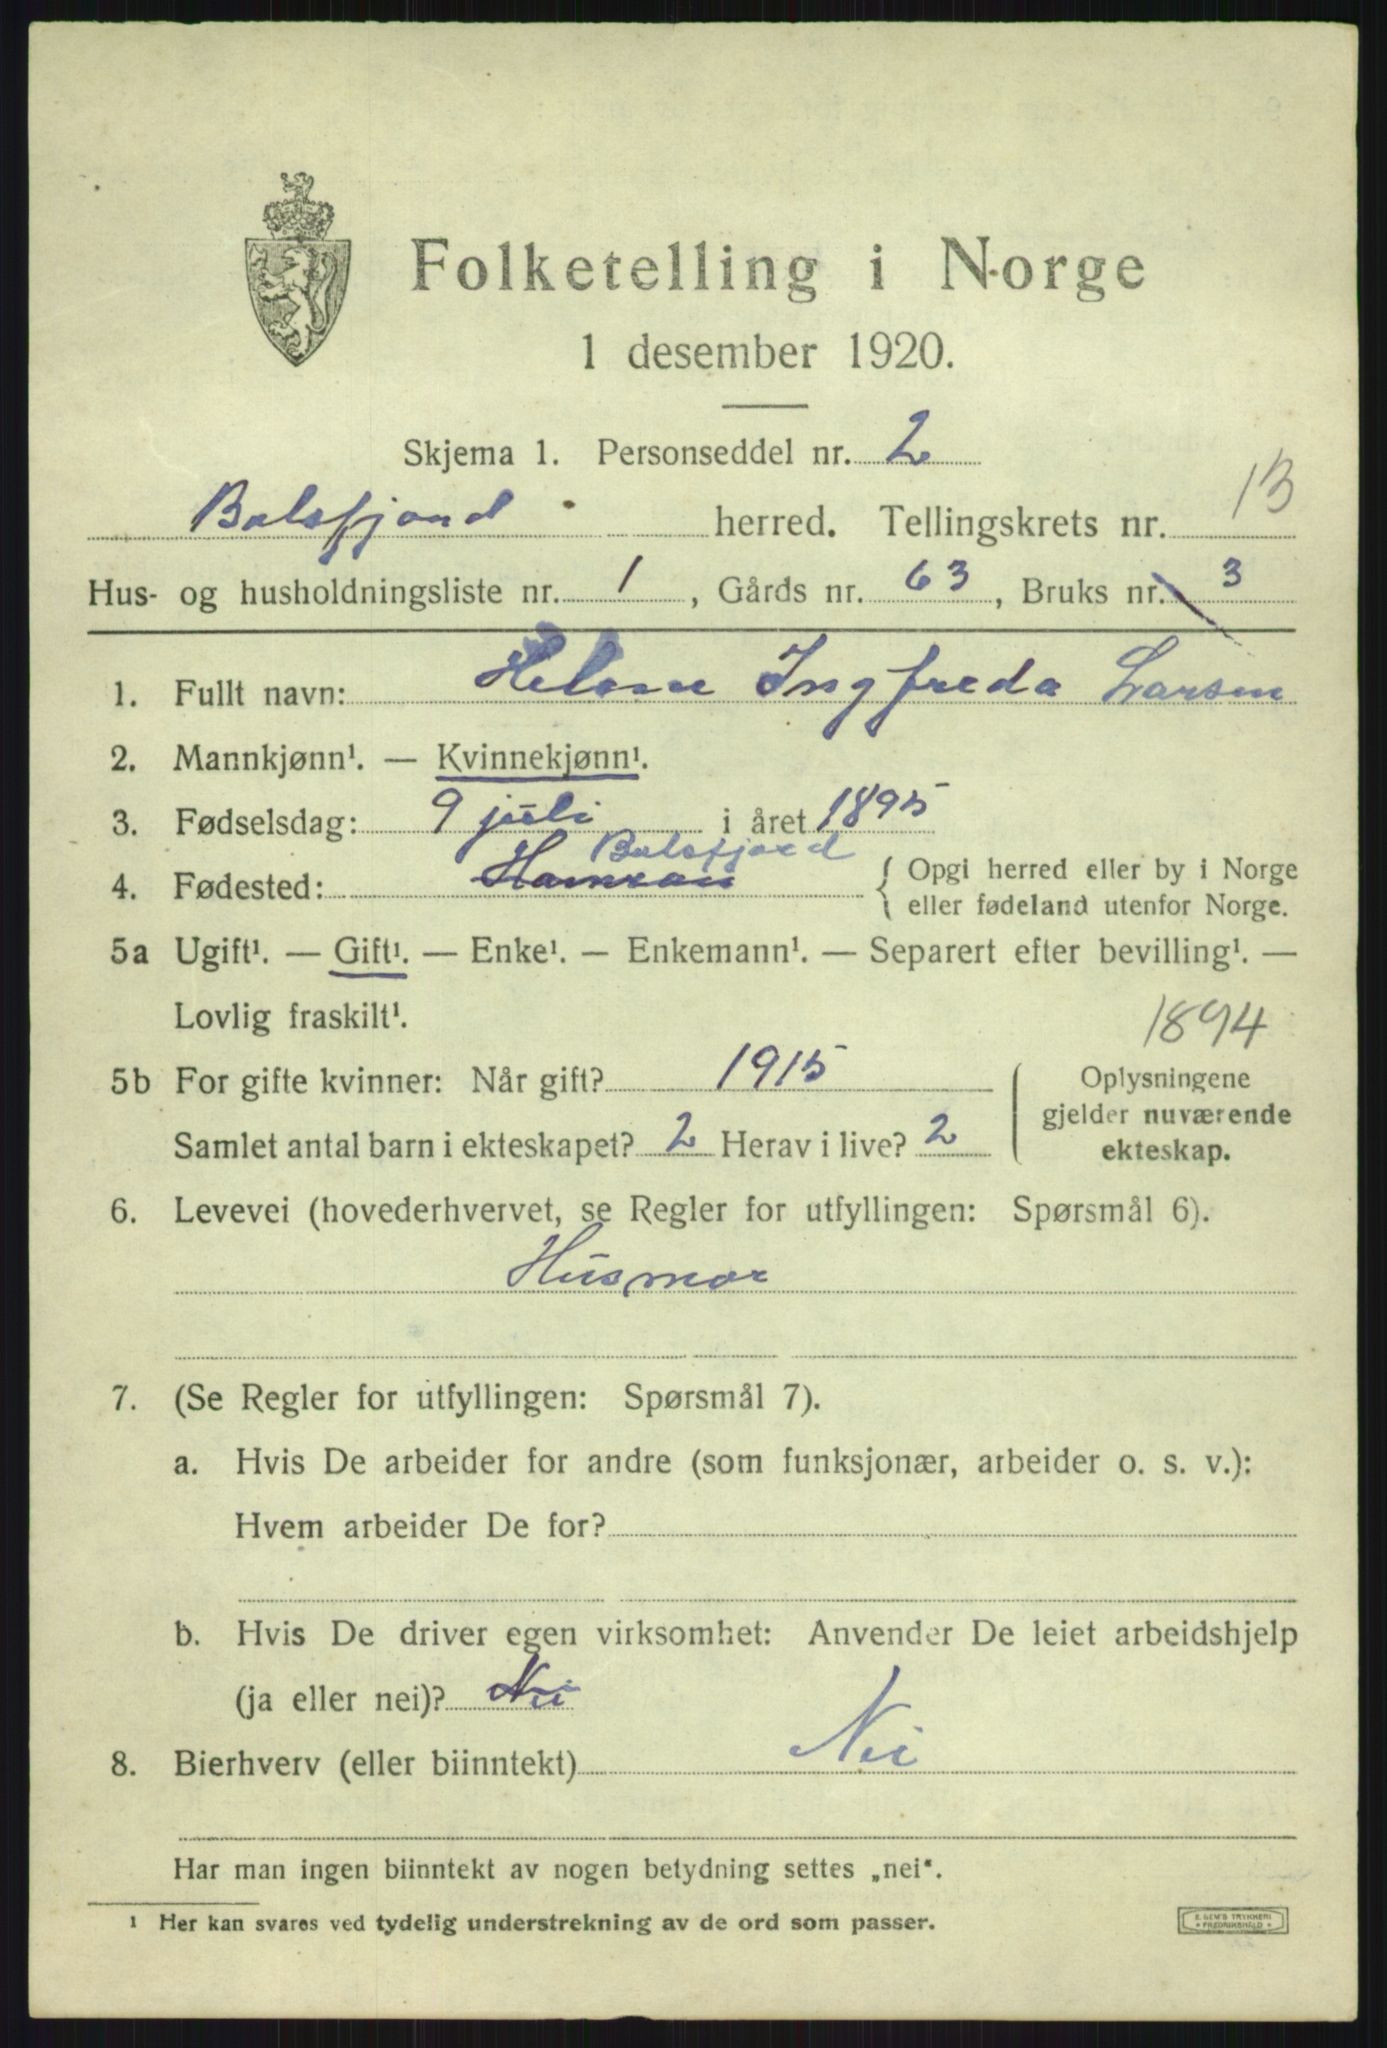 Folketelling i Norge
1 desember 1920.
Skjema 1. Personseddel nr. 2
Balsfjord herred. Tellingskrets nr. 13
Hus- og husholdningsliste nr. 1, Gårds nr. 63, Bruks nr. 3
1. Fullt navn: Helene Ingfreda Larsen
2. Mannkjønn¹. — Kvinnekjønn¹.
3. Fødselsdag: 9 juli i året 1895
Balsfjord
4. Fødested: { Opgi herred eller by i Norge
eller fødeland utenfor Norge.
5a Ugift¹. — Gift¹. — Enke¹. — Enkemann¹. — Separert efter bevilling¹. —
Lovlig fraskilt¹.
1894
5b For gifte kvinner: Når gift? 1915
Samlet antal barn i ekteskapet? 2 Herav i live? 2
Oplysningene
gjelder nuværende
ekteskap.
6. Levevei (hovederhvervet, se Regler for utfyllingen: Spørsmål 6).
Husmor
7. (Se Regler for utfyllingen: Spørsmål 7).
a. Hvis De arbeider for andre (som funksjonær, arbeider o. s. v.):
Hvem arbeider De for?
b. Hvis De driver egen virksomhet: Anvender De leiet arbeidshjelp
(ja eller nei)? Nei
8. Bierhverv (eller biinntekt) Nei
Har man ingen biinntekt av nogen betydning settes „nei“.
¹ Her kan svares ved tydelig understrekning av de ord som passer.
E. SEM'S TRYKKERI
FREDRIKSHALD